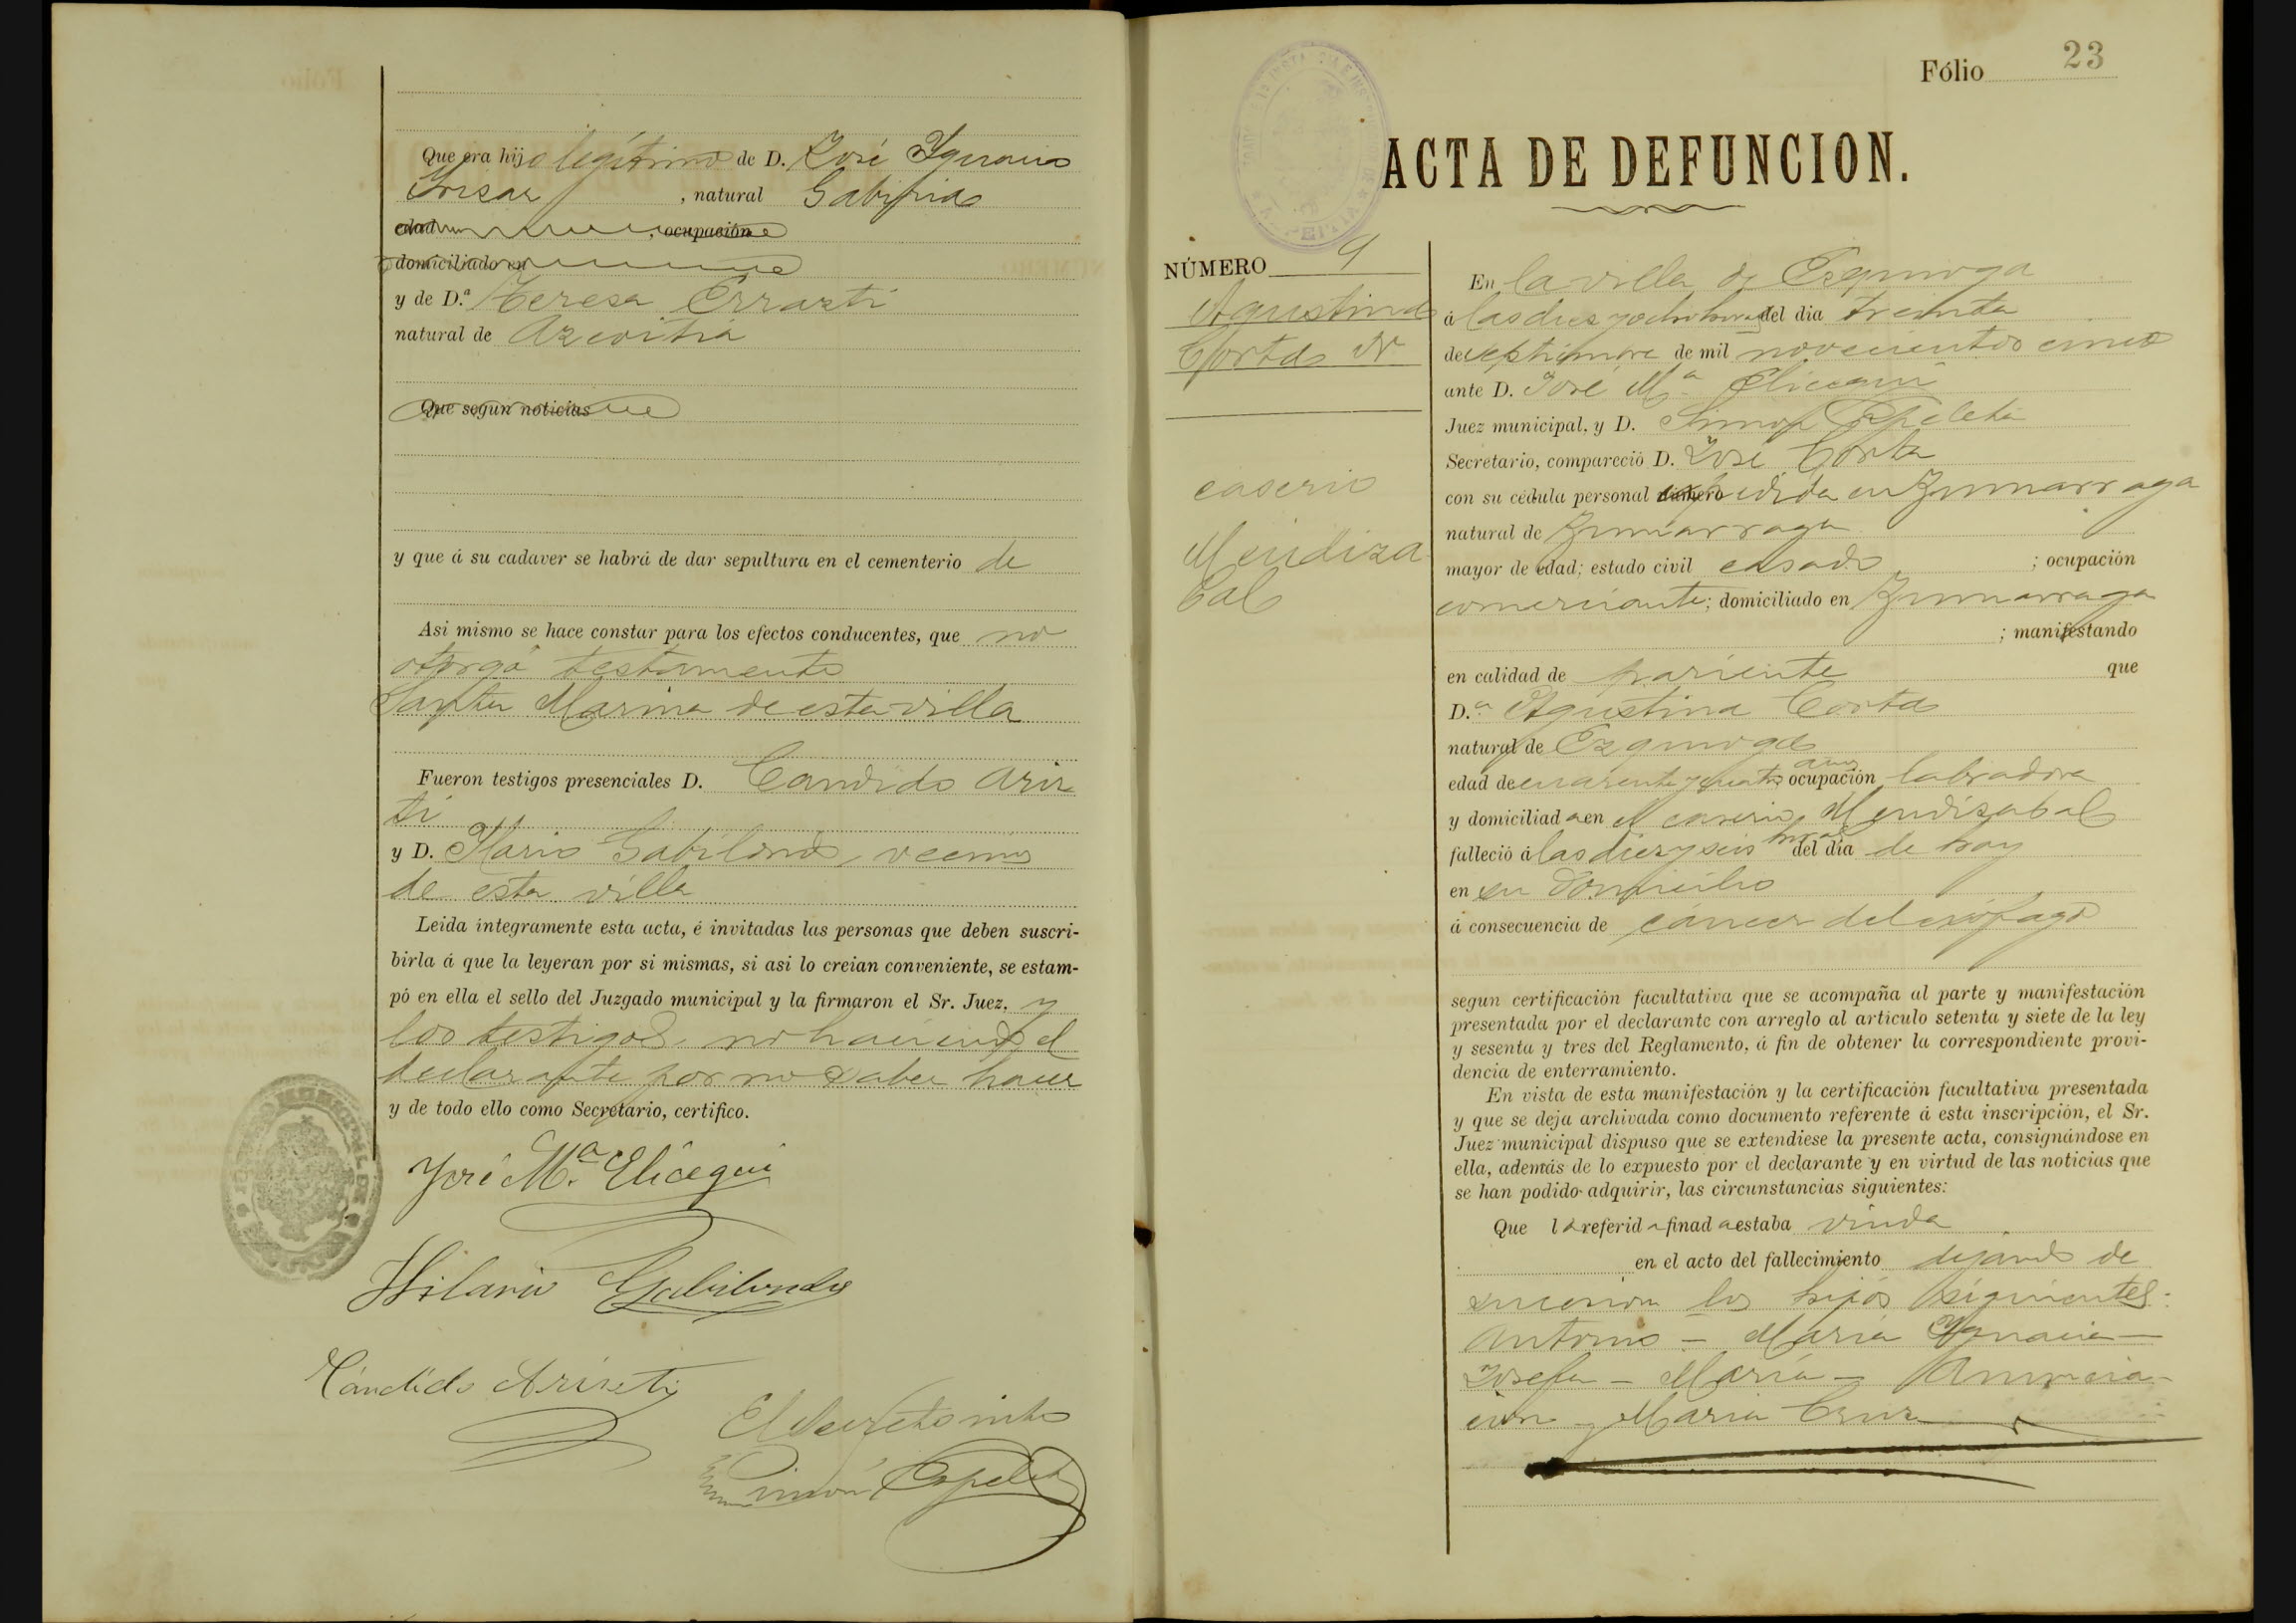 Que era hijo legítimo de D. José Ygnacio
Irizar, natural Gabiria
edad , ocupación
domiciliado en
y de D.ª Teresa Errazti
natural de Azcoitia
Que segun noticias
y que á su cadaver se habrá de dar sepultura en el cementerio de
Asi mismo se hace constar para los efectos conducentes, que no
otorgó testamento
Santa Marina de esta villa
Fueron testigos presenciales D. Candido Ariz
ti
y D. Ilario Gabilondo, vecinos
de esta villa
Leida íntegramente esta acta, é invitadas las personas que deben suscri-
birla á que la leyeran por si mismas, si asi lo creian conveniente, se estam-
pó en ella el sello del Juzgado municipal y la firmaron el Sr. Juez, y
los testigos, no haciendo el
declarante por no saber hacer
y de todo ello como Secretario, certifico.
José M.ª Elicegui
Hilario Gabilondo
Cándido Arizti
El Secretario
Simón
Fólio 23
ACTA DE DEFUNCION.
NÚMERO 9
Agustina
Corta
caserio
Mendiza
bal
En la villa de Ezquioga
á las diez y ocho horas del dia treinta
de septiembre de mil novecientos cinco
ante D. José M.ª Elicegui
Juez municipal, y D. Simon
Secretario, compareció D. José Corta
con su cédula personal número expedida en Zumarraga
natural de Zumarraga
mayor de edad; estado civil casado ; ocupación
comerciante; domiciliado en Zumarraga
; manifestando
en calidad de pariente que
D.ª Agustina Corta
natural de Ezquioga
edad de cuarenta y cuatro años ocupación labradora
y domiciliada en el caserio Mendizabal
falleció á las diez y seis horas del dia de hoy
en su domicilio
á consecuencia de cáncer del esófago
segun certificación facultativa que se acompaña al parte y manifestación
presentada por el declarante con arreglo al articulo setenta y siete de la ley
y sesenta y tres del Reglamento, á fin de obtener la correspondiente provi-
dencia de enterramiento.
En vista de esta manifestación y la certificación facultativa presentada
y que se deja archivada como documento referente á esta inscripción, el Sr.
Juez municipal dispuso que se extendiese la presente acta, consignándose en
ella, además de lo expuesto por el declarante y en virtud de las noticias que
se han podido adquirir, las circunstancias siguientes:
Que la referida finada estaba viuda
en el acto del fallecimiento dejando de
sucesion los hijos siguientes:
Antonio – María Ygnacia –
Josefa – María – Anuncia-
cion y Maria Cruz